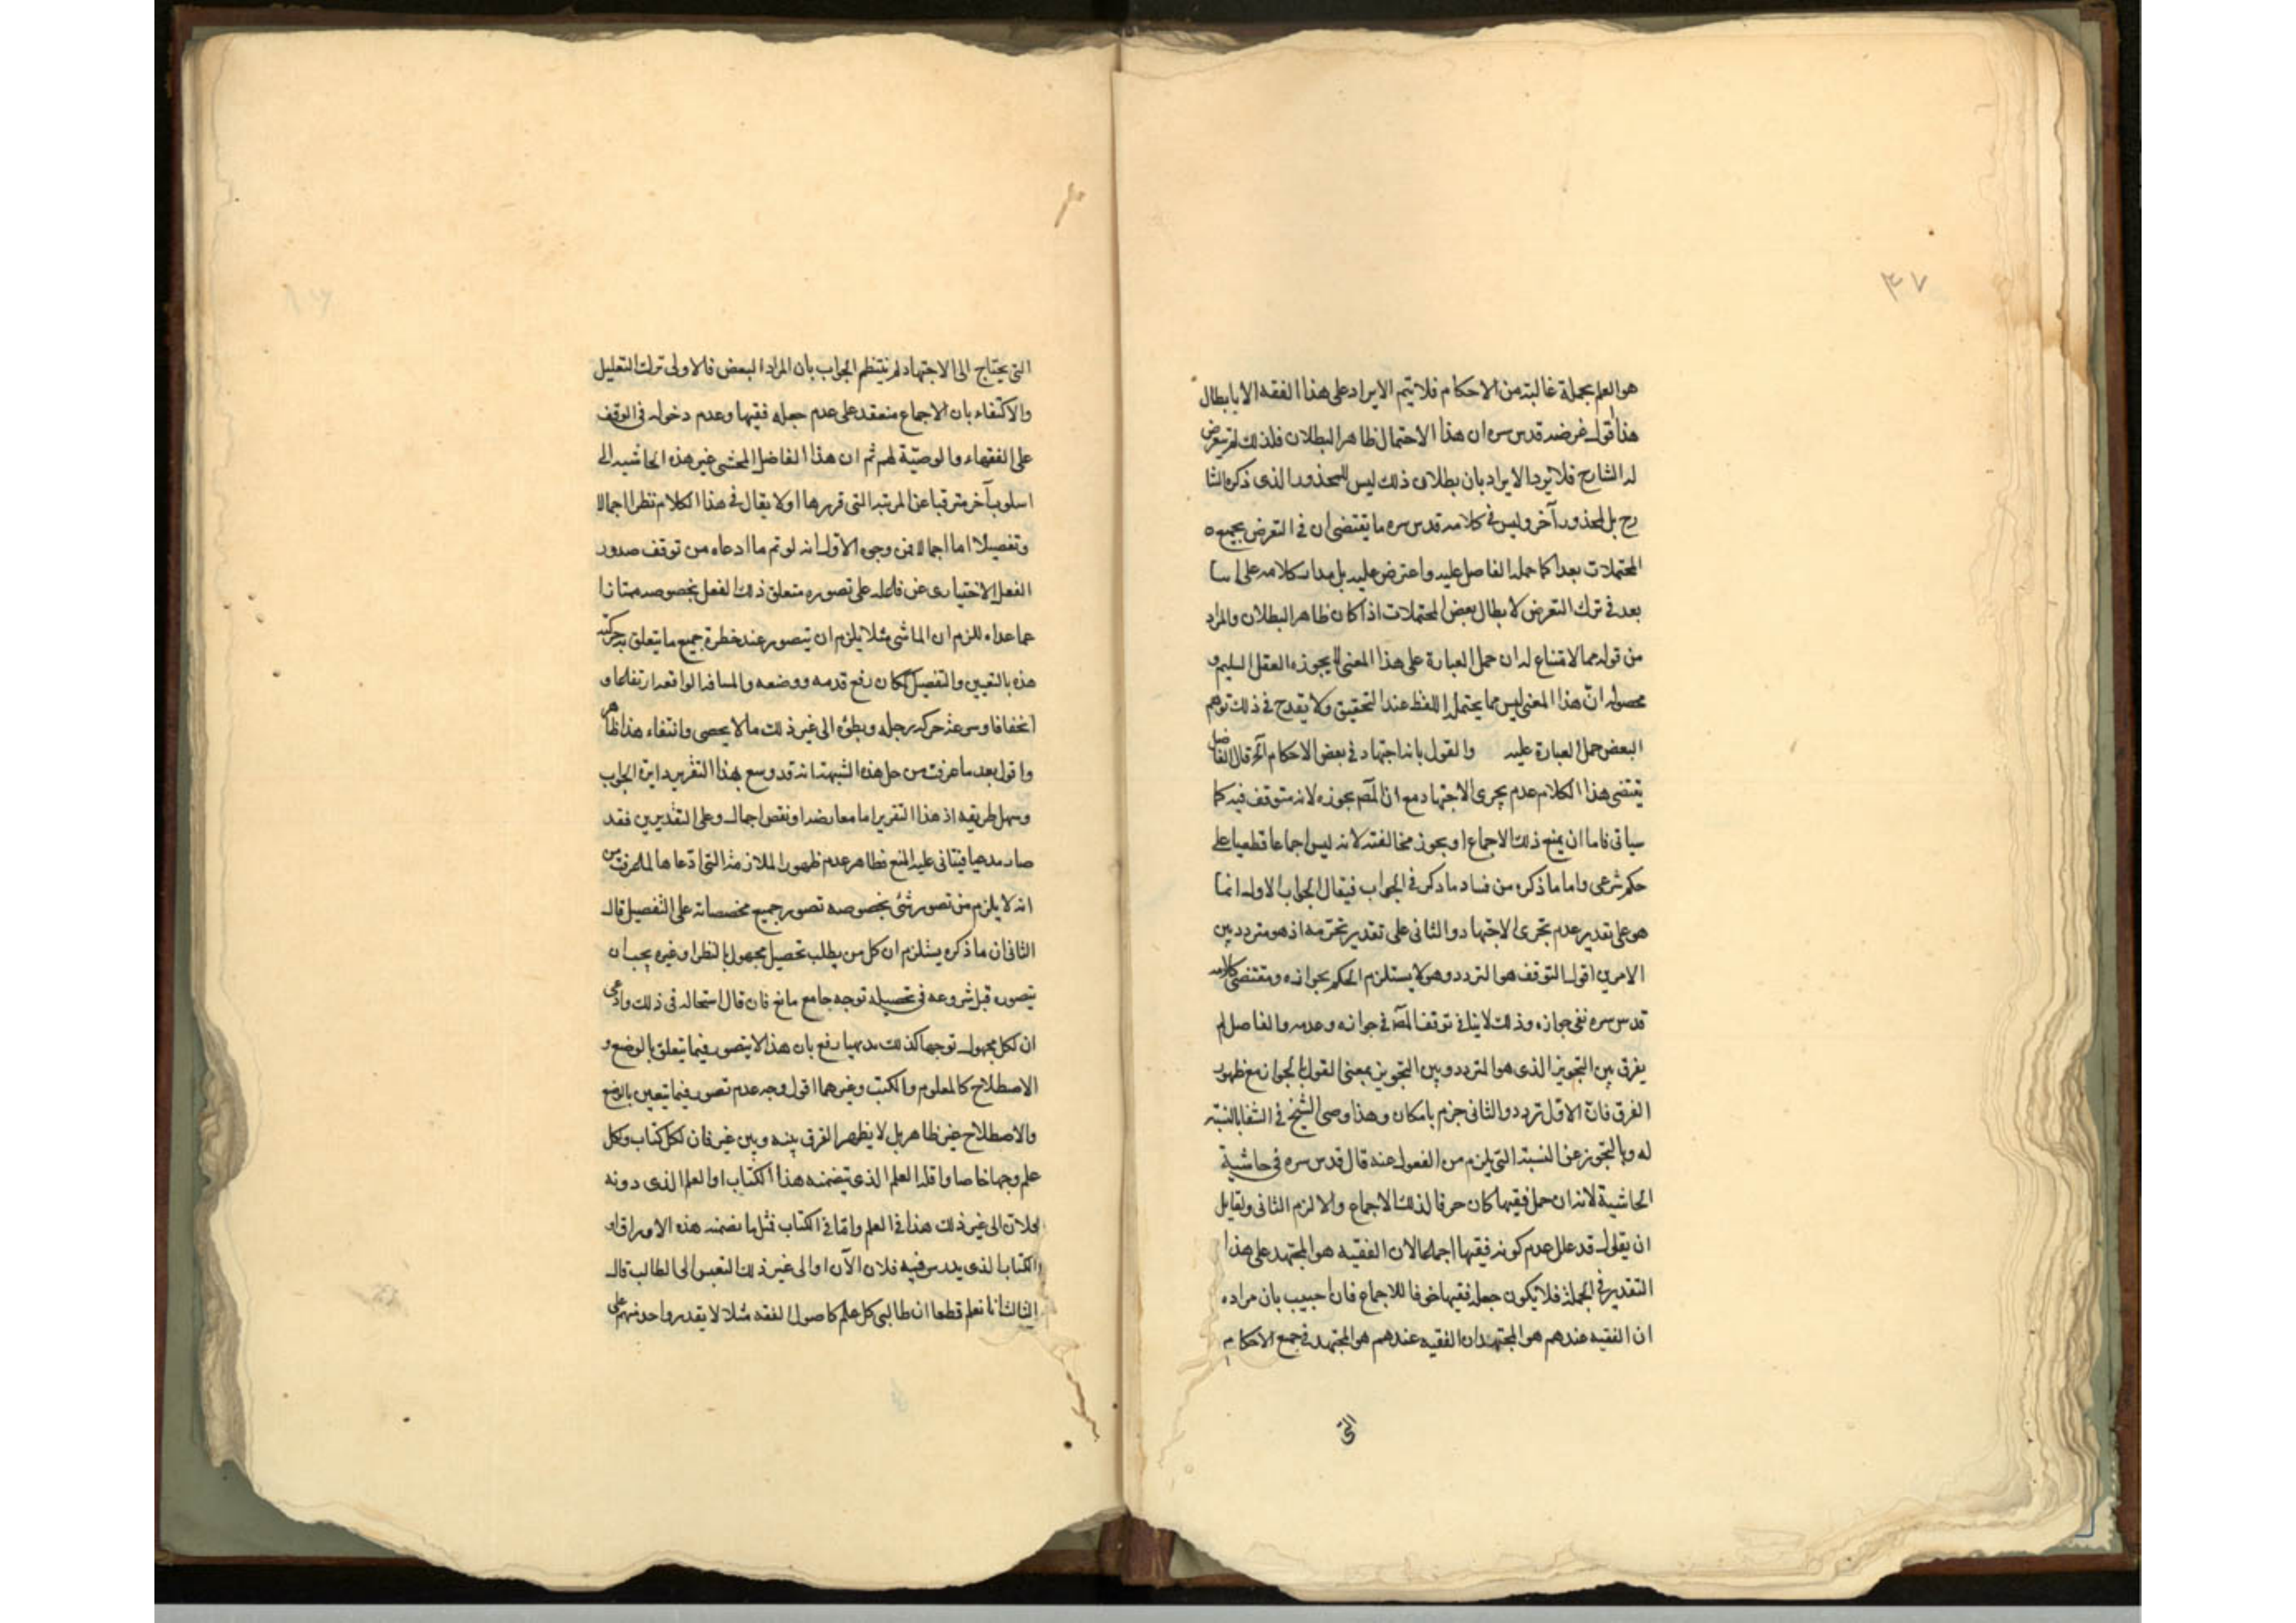 ٣٧
هو العلم بجملة غالبة من الاحكام فلا يتم الايراد على هذا الفقه الا بابطال
هذا اقول غرضه قدس سره ان هذا الاحتمال ظاهر البطلان فلذلك لم يتعرض
له الشارح فلا يرد الايراد بان بطلان ذلك ليس للمحذور الذى ذكره الشا
رح بل لمحذور آخر وليس فى كلامه قدس سره ما يقتضى ان فى التعرض بجميع
المحتملات بعدا كما حمله الفاضل عليه واعترض عليه بل مدار كلامه على ان لا
بعد فى ترك التعرض لابطال بعض المحتملات اذا كان ظاهر البطلان والمراد
من قوله مما لا اقتناع له ان حمل العبارة على هذا المعنى لا يجوزه العقل السليم و
محصوله انّ هذا المعنى ليس مما يحتمله اللفظ عند التحقيق ولا يقدح فى ذلك توهم
البعض حمل العبارة عليه والقول بانه اجتهاد فى بعض الاحكام آلخ قال الفاضل
يقتضى هذا الكلام عدم تجرى الاجتهاد مع ان المصّ يجوزه لانه متوقف فيه كما
سياتى فاما ان يمنع ذلك الاجماع او يجوز مخالفته لانه ليس اجماعا قطعيا على
حكم شرعى واما ما ذكره من فساد ما ذكر فى الجواب فيقال الجواب الاول انما
هو على تقدير عدم تجرى الاجتهاد والثانى على تقدير تجزيه اذ هو متردد بين
الامرين اقول التوقف هو التردد وهو لا يستلزم الحكم بجوازه ومقتضى كلامه
قدس سره نفى جوازه وذلك لا ينافى توقف المصّ فى جوازه وعدمه والفاضل لم
يفرق بين التجويز الذى هو التردد وبين التجويز بمعنى القول بالجواز مع ظهور
الفرق فان الاوّل تردد والثانى جزم بامكان وهذا وصى الشيخ فى الشفا بالنسبة
له وبالتجوز عن النسبة التى يلزم من الفعول عنه قال قدس سره فى حاشية
الحاشية لانه ان حمل فقيها كان خرقا لذلك الاجماع والا لزم الثانى ولقايل
ان يقول قد علل عدم كونه فقيها اجماعا لان الفقيه هو المجتهد على هذا
التقدير فى الجملة فلا يكون جعله فقيها خرقا للاجماع فان اجيب بان مراده
ان الفقيه عندهم هو المجتهد ان الفقيه عندهم هو المجتهد فى جمع الاحكام
التى
التى يحتاج الى الاجتهاد لم ينتظم الجواب بان المراد البعض فالاولى ترك التعليل
والاكتفاء بان الاجماع منعقد على عدم جعله فقيها وعدم دخوله فى الوقف
على الفقهاء والوصيّة لهم ثم ان هذا الفاضل المحشى غير هذه الحاشيه الى
اسلوب آخر مترقيا عن المرتبه التى قررها اولا يقال فى هذا الكلام نظر اجمالا
وتفصيلا اما اجمالا فمن وجوه الاول انه لو تم ما ادعاه من توقف صدور
الفعل الاختيارى عن فاعله على تصوره متعلق ذلك الفعل بخصوصه ممتازا
عما عداه للزم ان الماشى مثلا يلزم ان يتصور عند خطرة جميع ما يتعلق بحركته
هذه بالتعيين والتفصيل ككان رفع قدمه ووضعه والمسافة الواقعة ارتفاعا و
انخفاضا وسرعة حركة رجله وبطؤه الى غير ذلك مالا يحصى وانتفاء هذا ظاهر
واقول بعد ما عرفت من حل هذه الشبهة انه قد وسع بهذا التقرير دايرة الجواب
وسهل طريقه اذ هذا التقرير اما معارضه او نقص اجمالى وعلى التقديرين فقد
صار مدعيا فيتاتى عليه المنع فظاهر عدم ظهور الملازمة التى ادّعاها لما عرفت من
انه لا يلزم من تصور شئ بخصوصه تصور جميع مخصصاته على التفصيل قال
الثانى ان ما ذكره يستلزم ان كل من يطلب تحصيل مجهول بالنظر او غيره يجب ان
يتصوره قبل شروعه فى تحصيله توجه جامع مانع فان قال استحاله فى ذلك وادعى
ان لكل مجهول توجها كذلك بديهيا رفع بان هذا لا يتصور فيما يتعلق بالوضع و
الاصطلاح كالمعلوم والكتب وغيرهما اقول وجه عدم تصوره فيما يتعين بالوضع
والاصطلاح غير ظاهر بل لا يظهر الفرق بينه وبين غيره فان لكل كتاب ولكل
علم وجها خاصا واقله العلم الذى يتضمنه هذا الكتاب او العلم الذى دونه
فلان الى غير ذلك هذا فى العلم وامّا فى الكتاب فمثل ما تضمنه هذه الاوراق او
الكتاب الذى يدرس فيه فلان الآن او الى غير ذلك التعبير الى الطالب قال
الثالث انا نعلم قطعا ان طالبى كل علم كاصول الفقه مثلا لا يقدر واحد منهم على